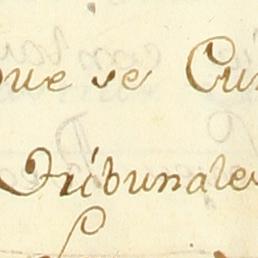 que se Cu
Tribunales